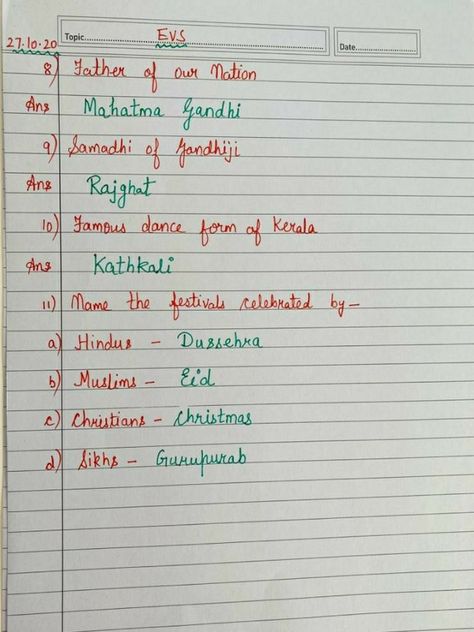 Topic EVS
Date
27.10.20
8) Father of our Nation
Ans Mahatma Gandhi
9) Samadhi of Gandhiji
Ans Rajghat
10) Famous dance form of Kerala
Ans Kathkali
11) Name the festivals celebrated by –
a) Hindus – Dussehra
b) Muslims – Eid
c) Christians – Christmas
d) Sikhs – Gurupurab